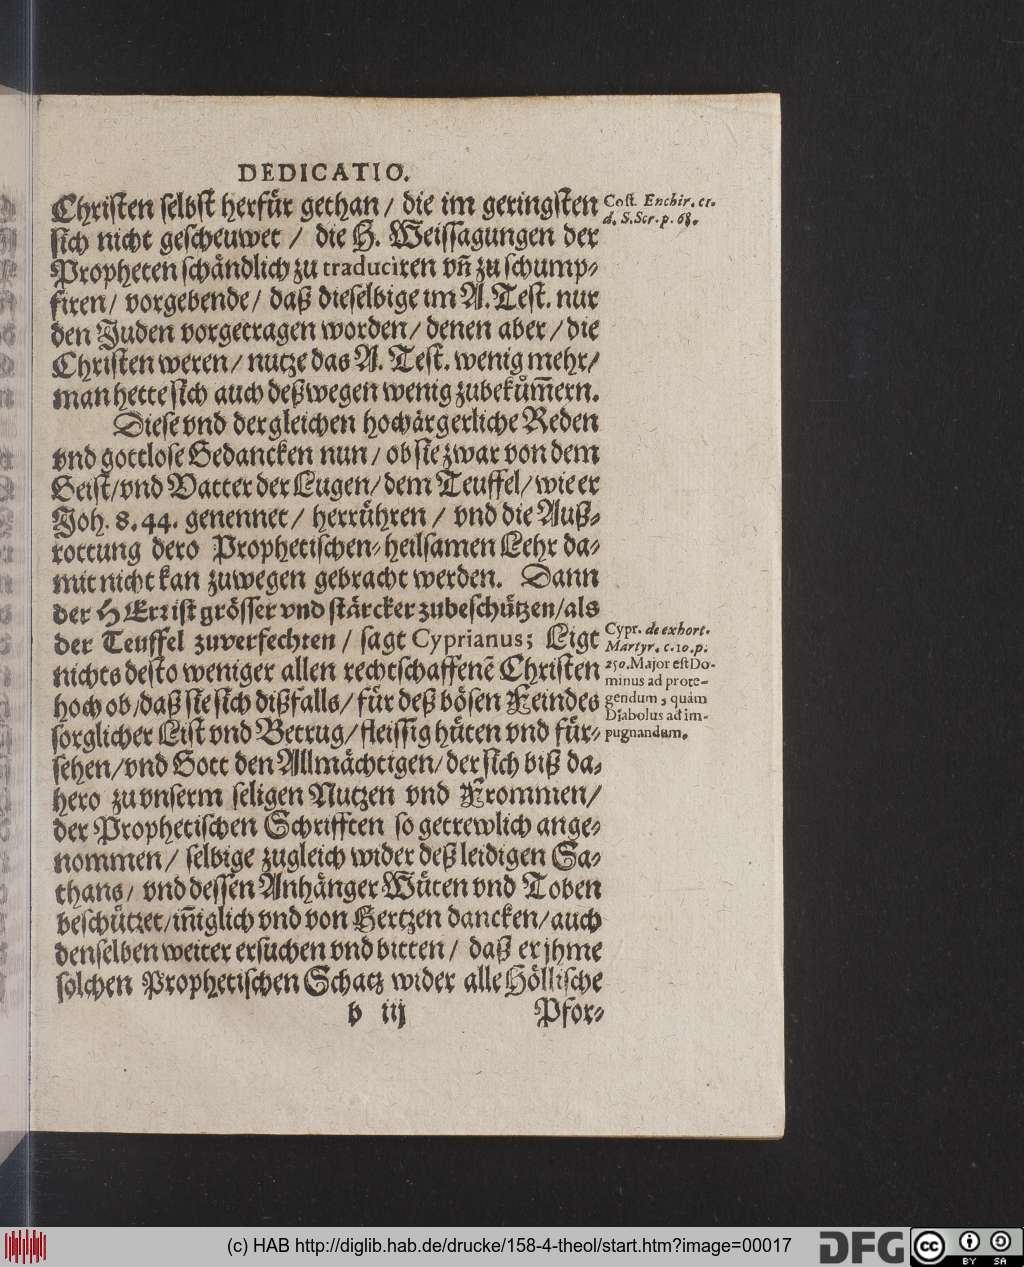 DEDICATIO.
Christen selbst herfür gethan / die im geringsten
sich nicht gescheuwet / die H. Weissagungen der
Propheten schändlich zu traduciren vn̄ zu schump-
firen / vorgebende / daß dieselbige im A. Test. nur
den Juden vorgetragen worden / denen aber / die
Christen weren / nutze das A. Test. wenig mehr /
man hette sich auch deßwegen wenig zubekům̄ern.
Diese vnd dergleichen hochärgerliche Reden
vnd gottlose Gedancken nun / ob sie zwar von dem
Geist / vnd Vatter der Lugen / dem Teuffel / wie er
Joh. 8. 44. genennet / herrühren / vnd die Auß-
rottung dero Prophetischen-heilsamen Lehr da-
mit nicht kan zuwegen gebracht werden. Dann
der HErr ist grösser vnd stärcker zubeschützen / als
der Teuffel zuverfechten / sagt Cyprianus; Ligt
nichts desto weniger allen rechtschaffenē Christen
hoch ob / daß sie sich dißfalls / für deß bösen Feindes
sorglicher List vnd Betrug / fleissig hüten vnd für-
sehen / vnd Gott den Allmächtigen / der sich biß da-
hero zu vnserm seligen Nutzen vnd Frommen /
der Prophetischen Schrifften so getrewlich ange-
nommen / selbige zugleich wider deß leidigen Sa-
thans / vnd dessen Anhänger Wüten vnd Toben
beschützet / in̄iglich vnd von Hertzen dancken / auch
denselben weiter ersuchen vnd bitten / daß er jhme
solchen Prophetischen Schatz wider alle Höllische
b iij
Pfor-
Cost. Enchir. cr.
d. S. Scr. p. 68.
Cypr. de exhort.
Martyr. c. 10. p.
250. Major est Do-
minus ad prote-
gendum, quàm
Diabolus ad im-
pugnandum.
(c) HAB http://diglib.hab.de/drucke/158-4-theol/start.htm?image=00017
DFG
cc
BY SA